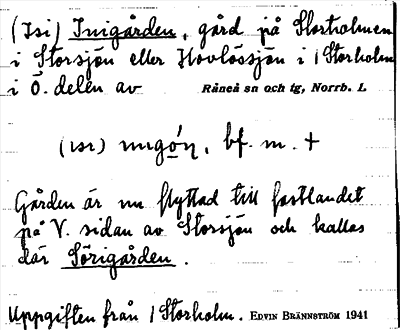 (Isi) Inigården, gård på Storholmen
i Storsjön eller Hovlössjön i 1 Storholm
i Ö. delen av Råneå sn och tg, Norrb. L.
(ısı) ınıgǫ́n, bf. m. +
Gården är nu flyttad till fastlandet
på V. sidan av Storsjön och kallas
där Sörigården.
Uppgiften från 1 Storholm. EDVIN BRÄNNSTRÖM 1941